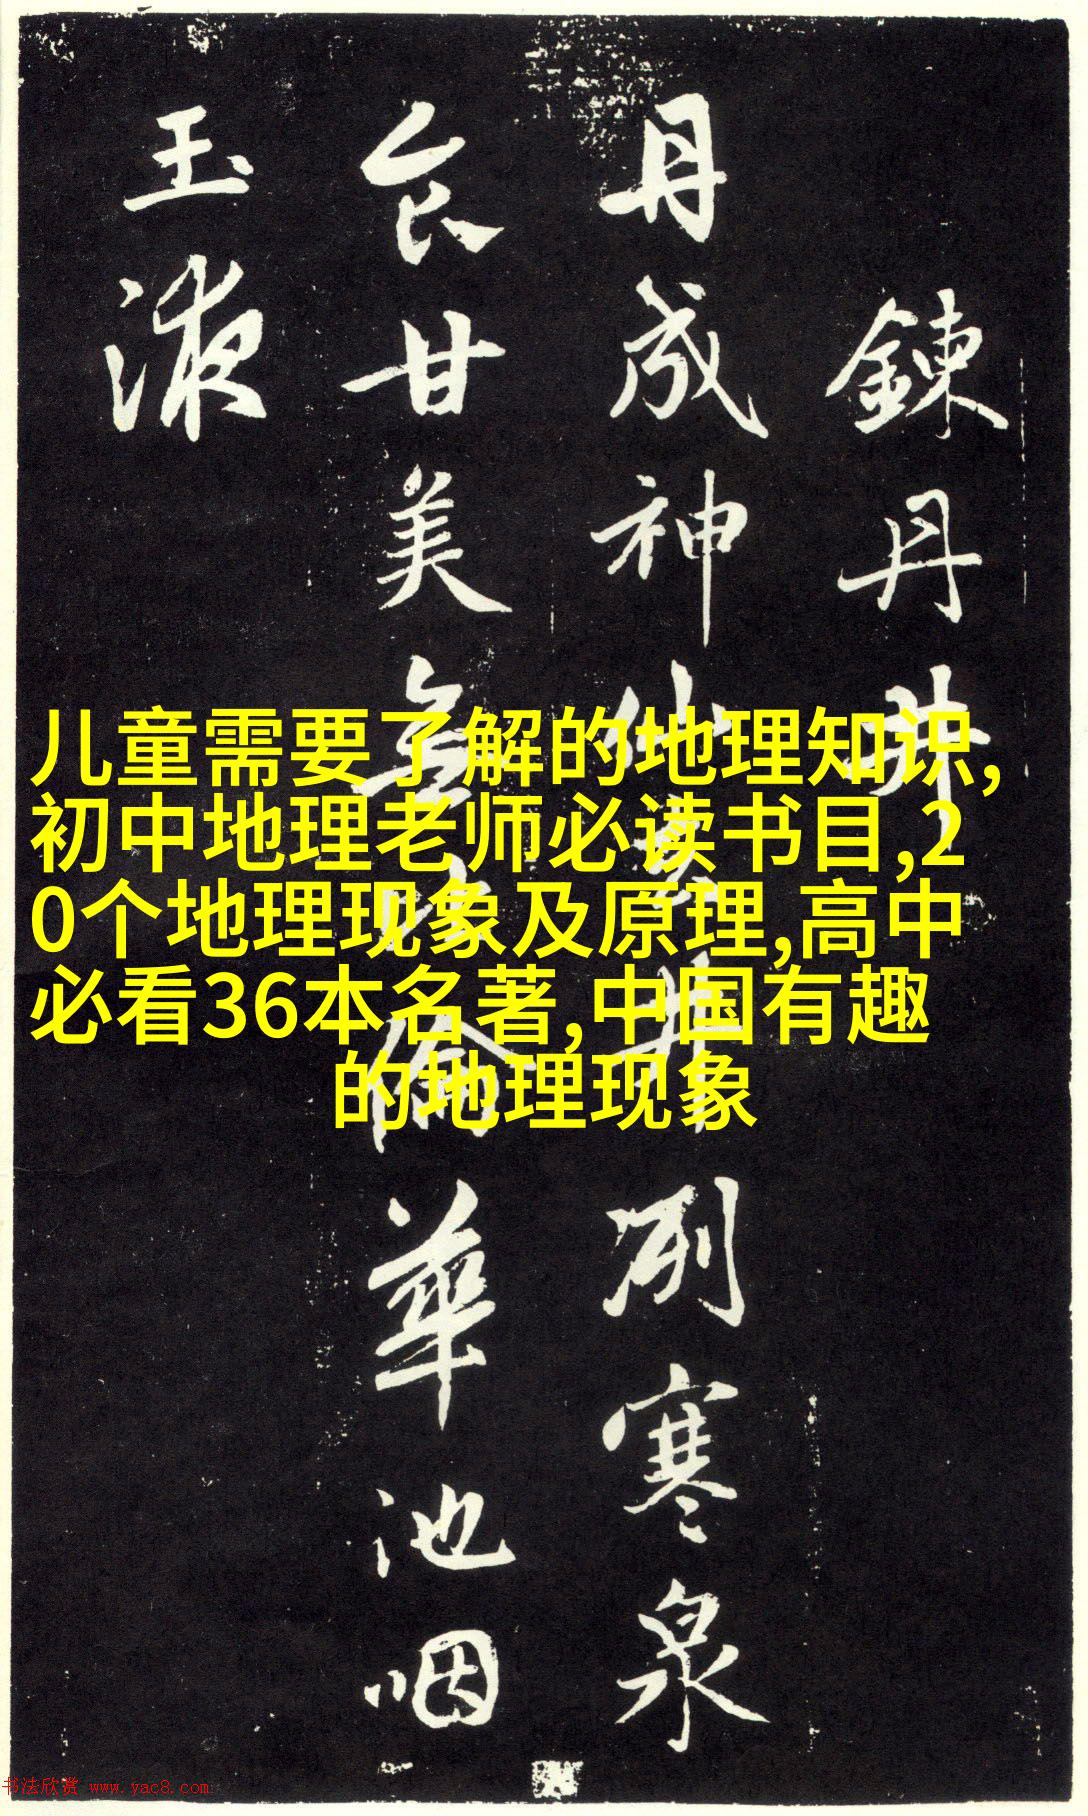 鍊丹井
丹成神仙井冽寒泉
食甘美無倫華池咽
玉液
儿童需要了解的地理知识,
初中地理老师必读书目,2
0个地理现象及原理,高中
必看36本名著,中国有趣
的地理现象
书法欣赏 www.yac8.com